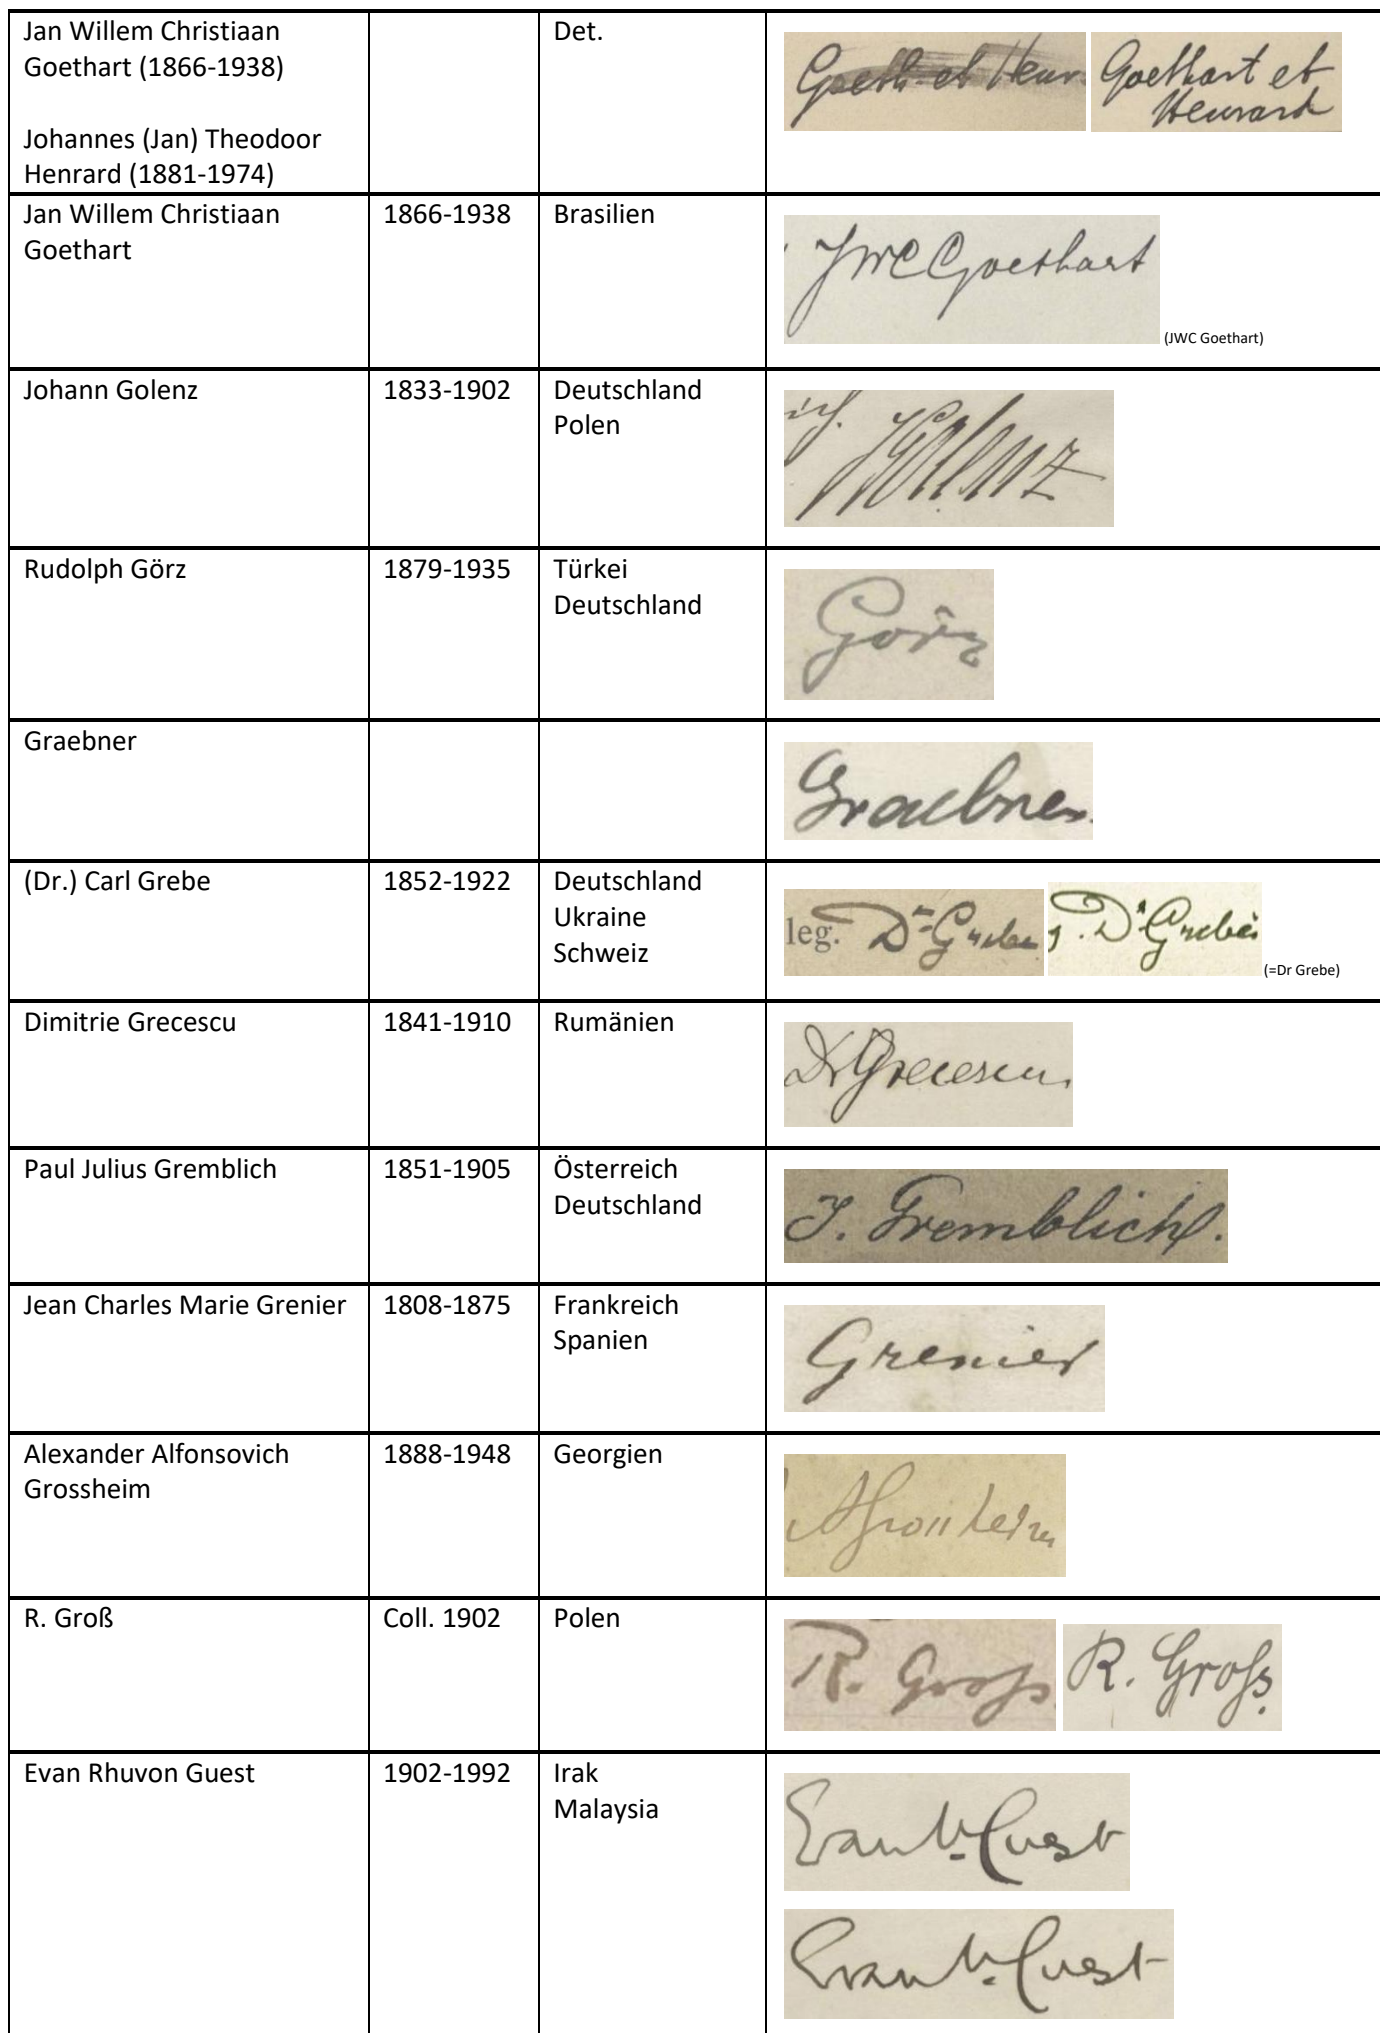 Jan Willem Christiaan
Goethart (1866-1938)
Johannes (Jan) Theodoor
Henrard (1881-1974)
Det.
Goeth et Henr
Goethart et
Henrard
Jan Willem Christiaan
Goethart
1866-1938
Brasilien
JWC Goethart
(JWC Goethart)
Johann Golenz
1833-1902
Deutschland
Polen
Golenz
Rudolph Görz
1879-1935
Türkei
Deutschland
Görz
Graebner
Graebner
(Dr.) Carl Grebe
1852-1922
Deutschland
Ukraine
Schweiz
leg. Dr Grebe
Dr Grebe
(=Dr Grebe)
Dimitrie Grecescu
1841-1910
Rumänien
Dr Grecescu
Paul Julius Gremblich
1851-1905
Österreich
Deutschland
J. Gremblich.
Jean Charles Marie Grenier
1808-1875
Frankreich
Spanien
Grenier
Alexander Alfonsovich
Grossheim
1888-1948
Georgien
AGrossheim
R. Groß
Coll. 1902
Polen
R. Groß
R. Groß.
Evan Rhuvon Guest
1902-1992
Irak
Malaysia
Evan Guest
Evan Guest